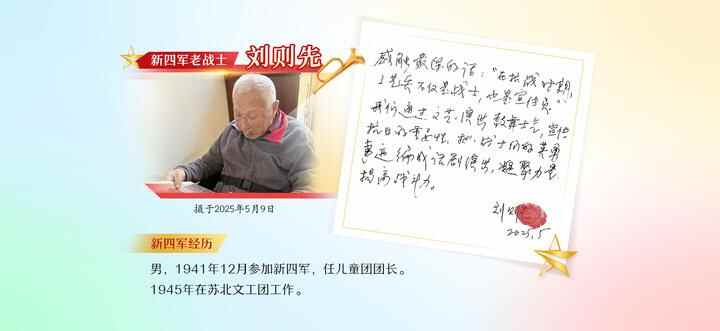 新四军老战士 刘则先
摄于2025年5月9日
新四军经历
男，1941年12月参加新四军，任儿童团团长。
1945年在苏北文工团工作。
感触最深的话："在抗战时期，
文艺兵不仅是战士，也是宣传员。"
我们通过文艺演出鼓舞士气，宣传
抗日的重要性，把战士们的英勇
事迹编成话剧演出，凝聚力量
提高战斗力。
刘则
2025.5